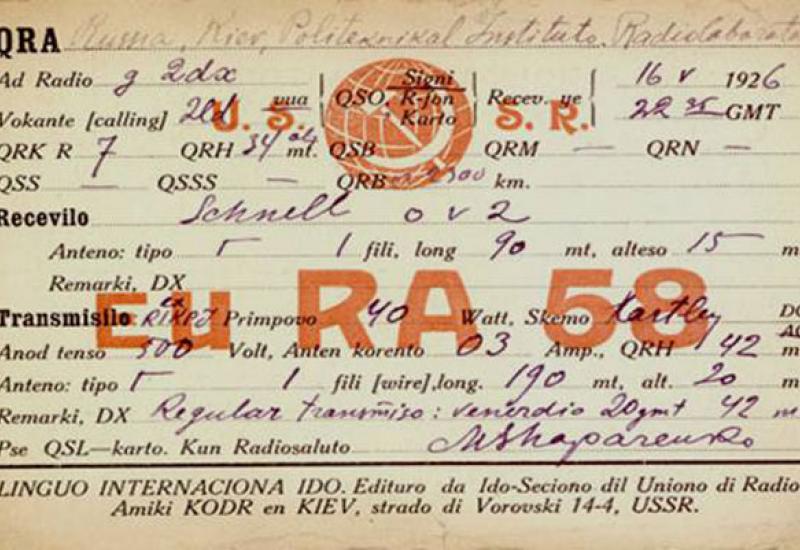 QRA Rusia, Kiev, Politeknikal Instituto. Radiolaborato
Ad Radio g 2dx Signi 16 V 1926
vua QSO, R-fon Recev. ye
Vokante [calling] 2ld Karto 22 35 GMT
U. S. S. R.
QRK R 7 QRH 34 mt. QSB QRM — QRN —
QSS — QSSS — QRB 2300 km.
Recevilo Schnell o v 2
Anteno: tipo Г 1 fili, long 90 mt, alteso 15 m
Remarki, DX
Eu RA 58
ex
Transmisilo R1KPJ Primpovo 40 Watt, Skemo Hartley DC
AC
Anod tenso 500 Volt, Anten korento 03 Amp., QRH 42 m
Anteno: tipo Г 1 fili [wire], long. 190 mt, alt. 20 m
Remarki, DX Regular transmiso: venerdio 20 gmt 42 m
Pse QSL—karto. Kun Radiosaluto MShaparenko
LINGUO INTERNACIONA IDO. Edituro da Ido-Seciono dil Uniono di Radio
Amiki KODR en KIEV, strado di Vorovski 14-4, USSR.